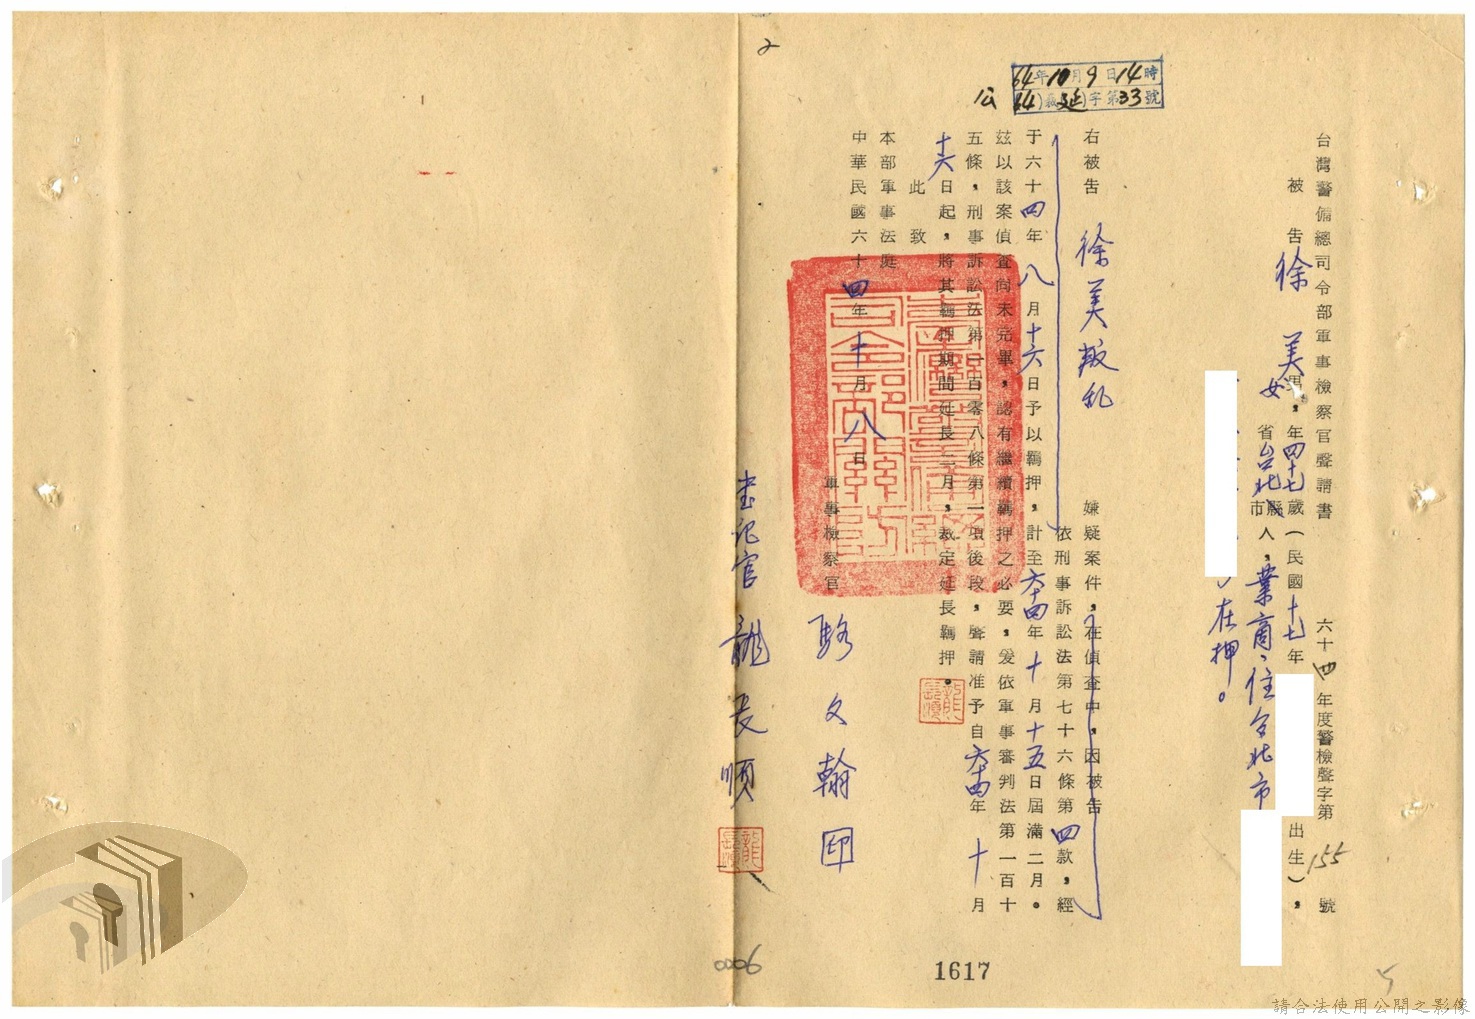 台灣警備總司令部軍事檢察官聲請書
六十四年度警檢聲字第155號
被告徐美男女,年四十七歲(民國十七年
出生),
省台北縣市人,業商、住台北市
在押。
右被告徐美叛乱嫌疑案件,在偵查中,因被告
依刑事訴訟法第七十六條第四款,經
于六十四年八月十六日予以羈押,計至六十四年十月十五日屆滿二月。
茲以該案偵查尚未完畢,認有繼續羈押之必要,爰依軍事審判法第一百十
五條,刑事訴訟法第一百零八條第一項後段,聲請准予自六十四年十月
十六日起,將其羈押期間延長二月,裁定延長羈押。
此致
本部軍事法庭
中華民國六十四年十月八日
軍事檢察官
駱文翰印
書記官龍長順
龍長順
龍長順
64年10月9日14時
(64)義延字第33號
公
2
0006
1617
5
請合法使用公開之影像